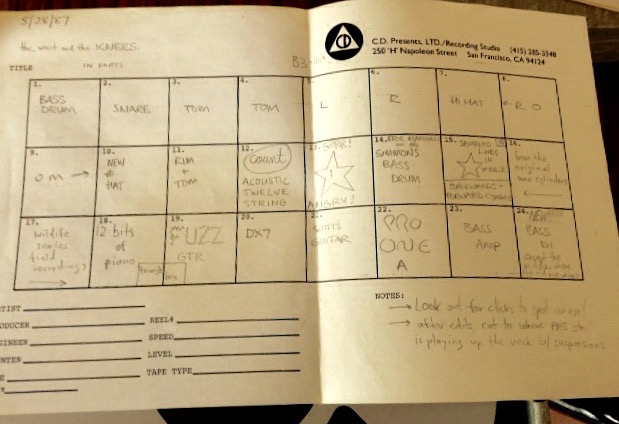 5/28/87
the waist and the KNEES
C.D. Presents, LTD./Recording Studio (415) 285-3348
250 'H' Napoleon Street San Francisco, CA 94124
CD
TITLE IN PARTS
1. BASS DRUM
2. SNARE
3. TOM
4. TOM
L
6. R
7. HI HAT
8. R O
9. O M →
10. NEW HAT
11. RIM + TOM
12. count ACOUSTIC TWELVE STRING
13. ANGRY!
14. SIMMONS BASS DRUM
15. BACKWARDS +
16. from the original wax cylinders
17. wildlife series field recordings →
18. 12 bits of piano
19. FUZZ GTR
20. DX7
21. GUITAR
22. PRO ONE A
23. BASS AMP
24. NEW BASS DI
triangle
ARTIST
PRODUCER
ENGINEER
REEL#
SPEED
LEVEL
TAPE TYPE
NOTES:
→ Look out for clicks to spot erase!
→ after edits, cut to where
is playing up the neck w/ suspensions